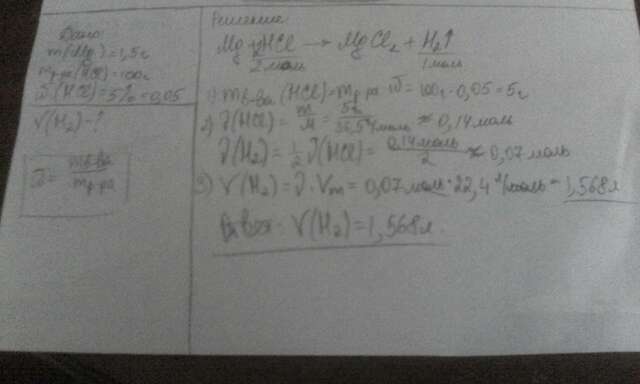 Дано
m(Mg)=1,5г
mр-ра(HCl)=100г
ω(HCl)=5%=0,05
V(H₂)-?
ω = mв-ва / mр-ра
Решение
Mg + 2HCl → MgCl₂ + H₂↑
2 моль 1 моль
1) mв-ва (HCl) = mр-ра · ω = 100г · 0,05 = 5г
2) ν(HCl) = m/M = 5г / 36,5 г/моль ≈ 0,14 моль
ν(H₂) = 1/2 ν(HCl) = 0,14 моль / 2 ≈ 0,07 моль
3) V(H₂) = ν · Vm = 0,07 моль · 22,4 л/моль = 1,568 л
Ответ: V(H₂) = 1,568 л.